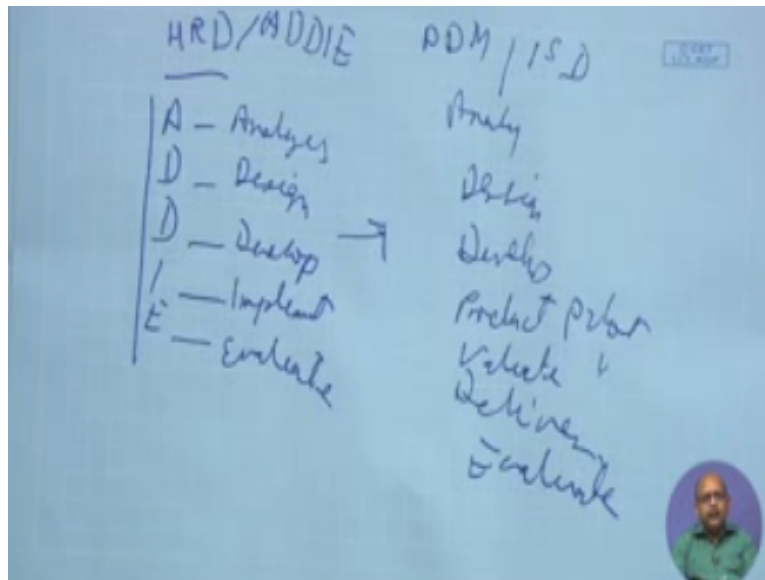 HRD/ADDIE
A - Analyes
D - Design
D - Develop →
I - Implement
E - Evaluate
DDM / ISD
Analy
Design
Develop
Product
Validate
Delivery
Evaluate